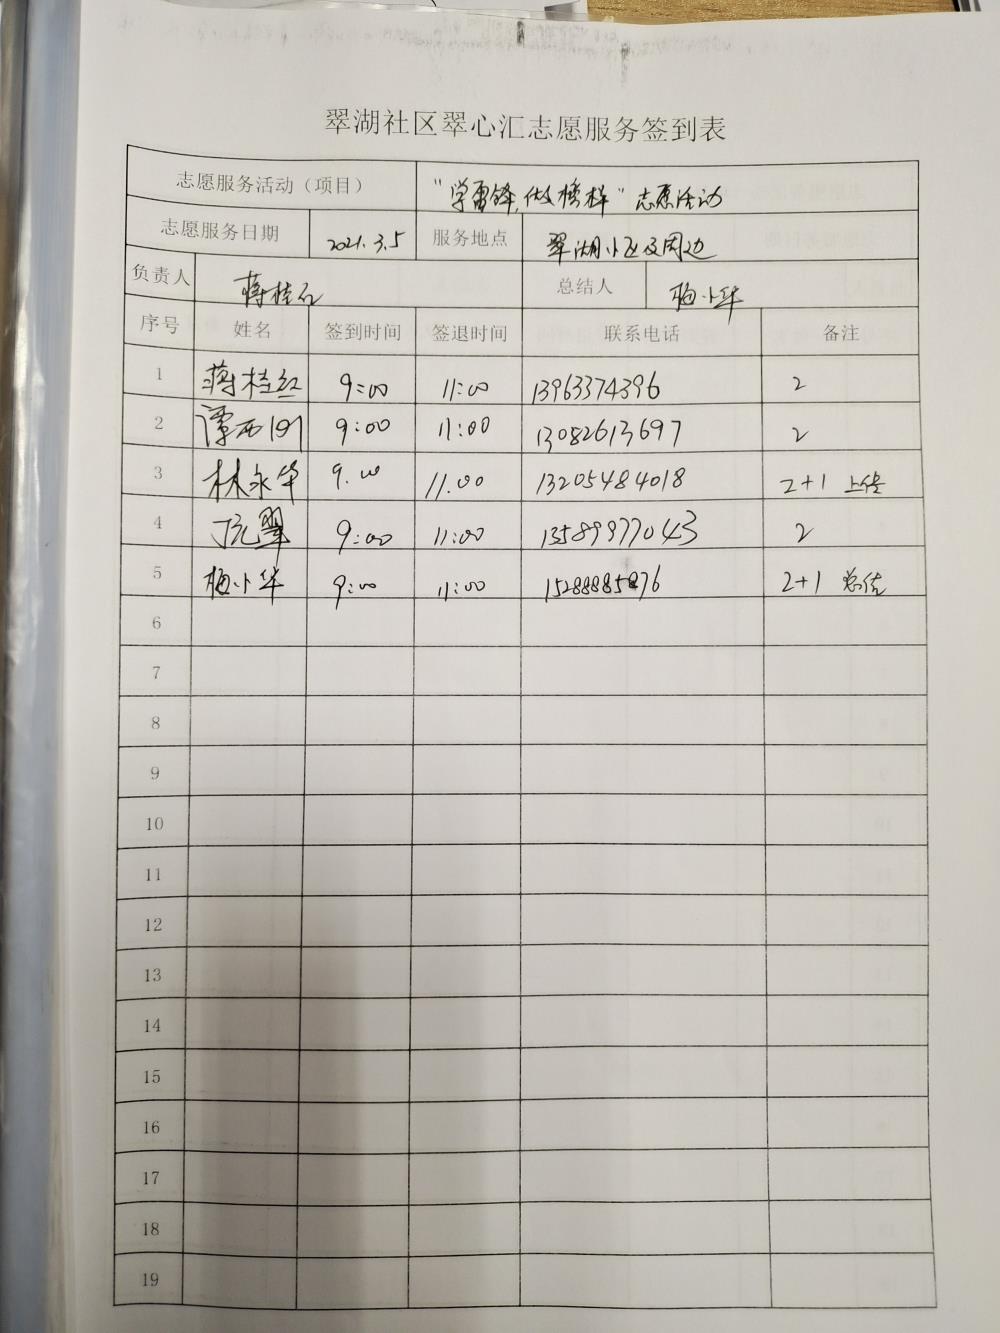 翠湖社区翠心汇志愿服务签到表
志愿服务活动（项目） “学雷锋，做榜样”志愿活动
志愿服务日期 2021.3.5 服务地点 翠湖小区及周边
负责人 蒋桂红 总结人 杨小华
序号 姓名 签到时间 签退时间 联系电话 备注
1 蒋桂红 9:00 11:00 13963374396 2
2 谭西 9:00 11:00 13082613697 2
3 林永华 9.00 11.00 13205484018 2+1 上传
4 翠 9:00 11:00 13589977043 2
5 杨小华 9:00 11:00 2+1 总结
6
7
8
9
10
11
12
13
14
15
16
17
18
19